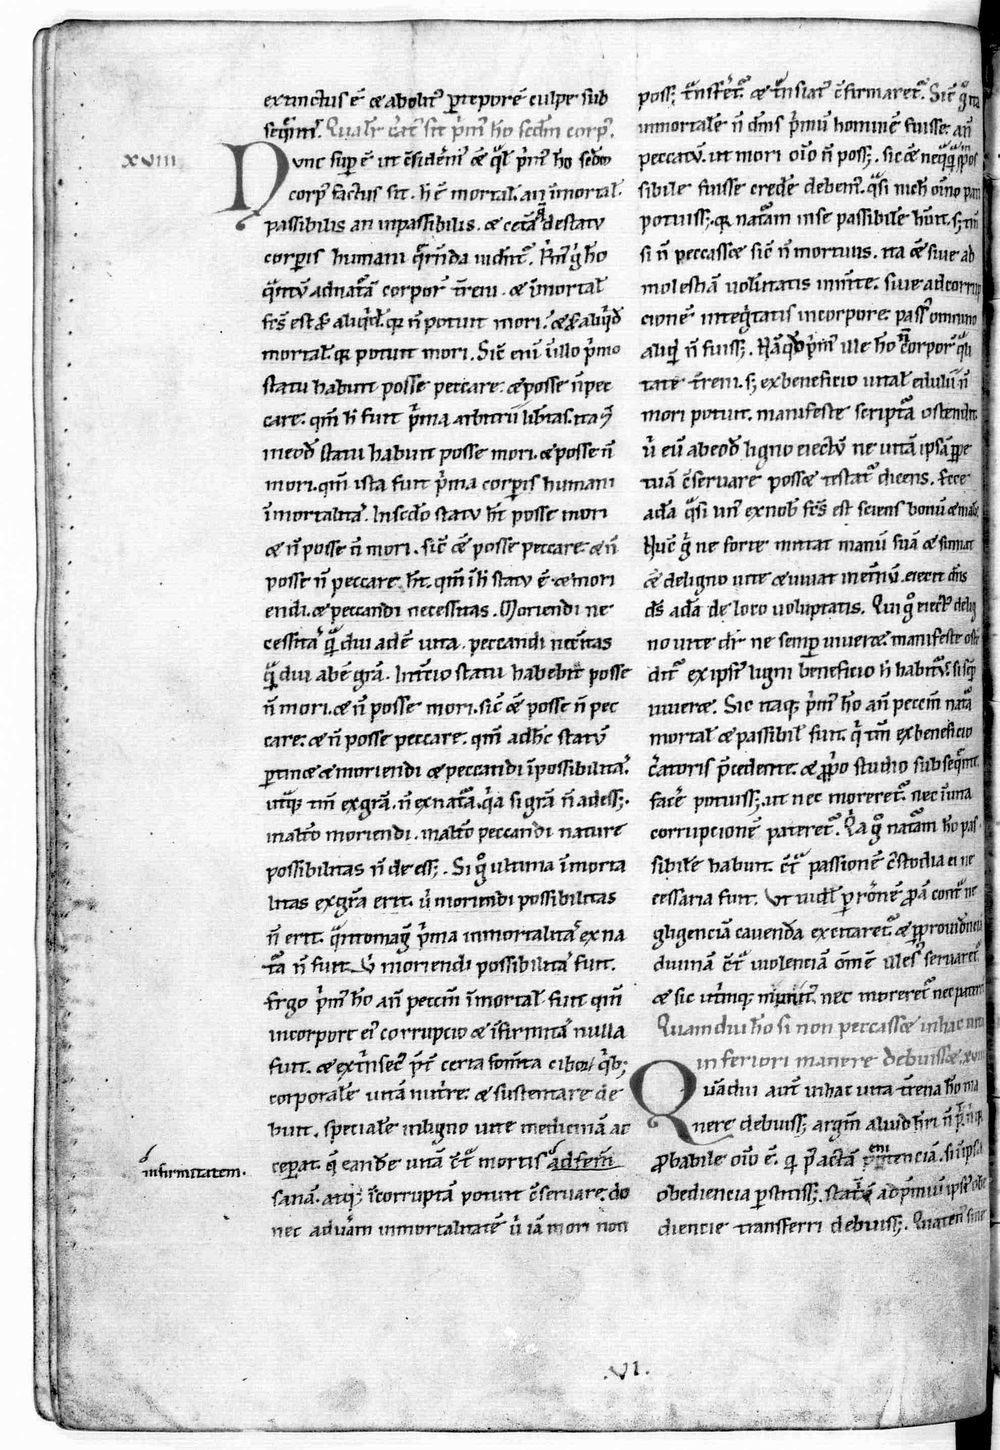 extinctus ē & abolitꝰ ꝑ tēporē culpe sub
seq̄nт̄. Qualꝭ c̄atꝰ sit p̄mꝰ hō secd̄m corpꝰ.
XVIII
Nunc suꝑ ē ut c̄sideremꝰ & q̄lꝭ p̄mꝰ hō sed̄m
corpꝰ factus sit. h̄ ē mortal̄. an īmortal̄.
passibilis an inpassibilis. & cet̄a de statu
corporis humani q̄renda uident̄. Primꝰ ḡ hō
q̄ntū ad natāā corporꝰ t̄reni. & īmortal̄
fc̄s est s̄ aliq̄d. q̄ n̄ potuit mori. & s̄ aliq̄d
mortal̄. q̄ potuit mori. Sic̄ eni in illo p̄mo
statu habuit posse peccare. & posse n̄ pec
care. qm̄ h̄ fuit p̄ma arbitrii lib̄tas. ita &
in eod̄ statu habuit posse mori. & posse n̄
mori. qm̄ ista fuit p̄ma corporis humani
īmortalitā. In sed̄o statu h̄t posse mori
& n̄ posse n̄ mori. sic̄ & posse peccare. & n̄
posse n̄ peccare h̄t. qm̄ ī h̄ statu ē & mori
endi. & peccandi necessitas. Moriendi ne
cessitā q̄ diu adē uita. peccandi nec̄itas
q̄ diu abē grā. In t̄cio statu habebit posse
n̄ mori. & n̄ posse mori. sic̄ & posse n̄ pec
care. & n̄ posse peccare. qm̄ ad h̄c statū
ꝑtinet & moriendi & peccandi īpossibilitā.
utq̄ꝫ tm̄ ex grā. n̄ ex natāā. q̄a si grā n̄ adess;.
moriendi. peccandi nature
possibilitas n̄ deess;. Si gͦ ultima īmorta
litas ex grā erit. u̇ moriendi possibilitas
n̄ erit. q̄ntomaḡ p̄ma inmortalitā ex na
tāā n̄ fuit. u̇ moriendi possibilitā fuit.
Ergo p̄mꝰ hō añ peccm̄ īmortal̄ fuit qm̄
in corpore eiꝰ corruptio & īfirmitā nulla
fuit. & extrinsecꝰ certa fomēta ciboꝝ q̄bꝫ
corporalē uitā nutrire. & sustentare de
buit. specialē in ligno uite medicinā ac
ceperat. q̄ eandē uitā c̄t̄ mortis ad fem̄
infirmitatem.
sanā. atq̄ꝫ īcorruptā potuit c̄seruare. do
nec ad uerā inmortalitatē u̇ iā mori non
poss;. t̄nsferret̄. & t̄nsiatꝰ c̄firmaret̄. Sic̄ gͦ
inmortalē n̄ p̄mū hominē fuisse. añ
peccatū. ut mori oīo n̄ poss;. sic & neq̄q̄
sibile fuisse credere debemꝰ. q̄si nich̄ oīno pati
potuiss;. q̄ natāā in se passibilē h̄uit. s; tn̄
si n̄ peccasset sic̄ n̄ mortuus. ita & siue ab
molestiā uoluntatis in mente. siue ad corrup
cionē integritatis in corpore passꝰ omnino
aliq̄d n̄ fuiss;. Nā q̄d p̄mꝰ ille hō n̄ corporꝰ q̄li
tate t̄reni. s; ex beneficio uital̄ edulii n̄
mori potuit. manifeste scriptāā ostendit.
u̇ eū ab eod̄ ligno eiectū ne uitā ipsā ꝑpe
tuā c̄seruare posset testat̄ dicens. Ecce
adā q̄si unꝰ ex nob̄ fc̄s est sciens bonū & malū.
Nūc ḡ ne forte mittat manū suā & sumat
& de ligno uite & uiuat in et̄nū. eiecit dn̄s
ds̄ adā de loco uoluptatis. Qui gͦ eiectꝰ de lig
no uite dr̄ ne semper uiueret. manifeste ostē
dit̄ ex ipsiꝰ ligni beneficio h̄ habitur. si semp̄
uiueret. Sic itaq̄ꝫ p̄mꝰ hō añ peccm̄ natāā
mortal̄ & passibil̄ fuit. q̄ tm̄ ex beneficio
c̄atoris p̄cedente. & ꝓpo studio subseq̄nt.
facere potuiss;. ut nec moreret̄. nec ī una
corrupcionē pateret̄. Q̄a gͦ natāā hō pas
sibilē habuit. c̄t̄ passionē c̄stodia ei ne
cessaria fuit. Vt uidel̄ ꝑ rōnē ꝓpā cont̄ ne
gligenciā cauenda excitaret̄. & ꝑ prouidenciā
diuinā c̄t̄ uiolenciā om̄ē illesꝰ seruaret̄.
& sic ut̄imq̄ꝫ munitꝰ nec moreret̄ nec pateret̄.
Quam diu hō si non peccasset in hac uita
inferiori manere debuisset. XVIIII
Quādiu aut̄ in hac uita t̄rena hō ma
nere debuiss;. argm̄
ꝓbabile oīo ē. q̄ p̄ actā penitenciā. si in ipsa
obediencia ꝑstitiss;. statī ad p̄miū ipsiꝰ obe
diencie transferri debuiss;. Quatenꝰ sine
.VI.